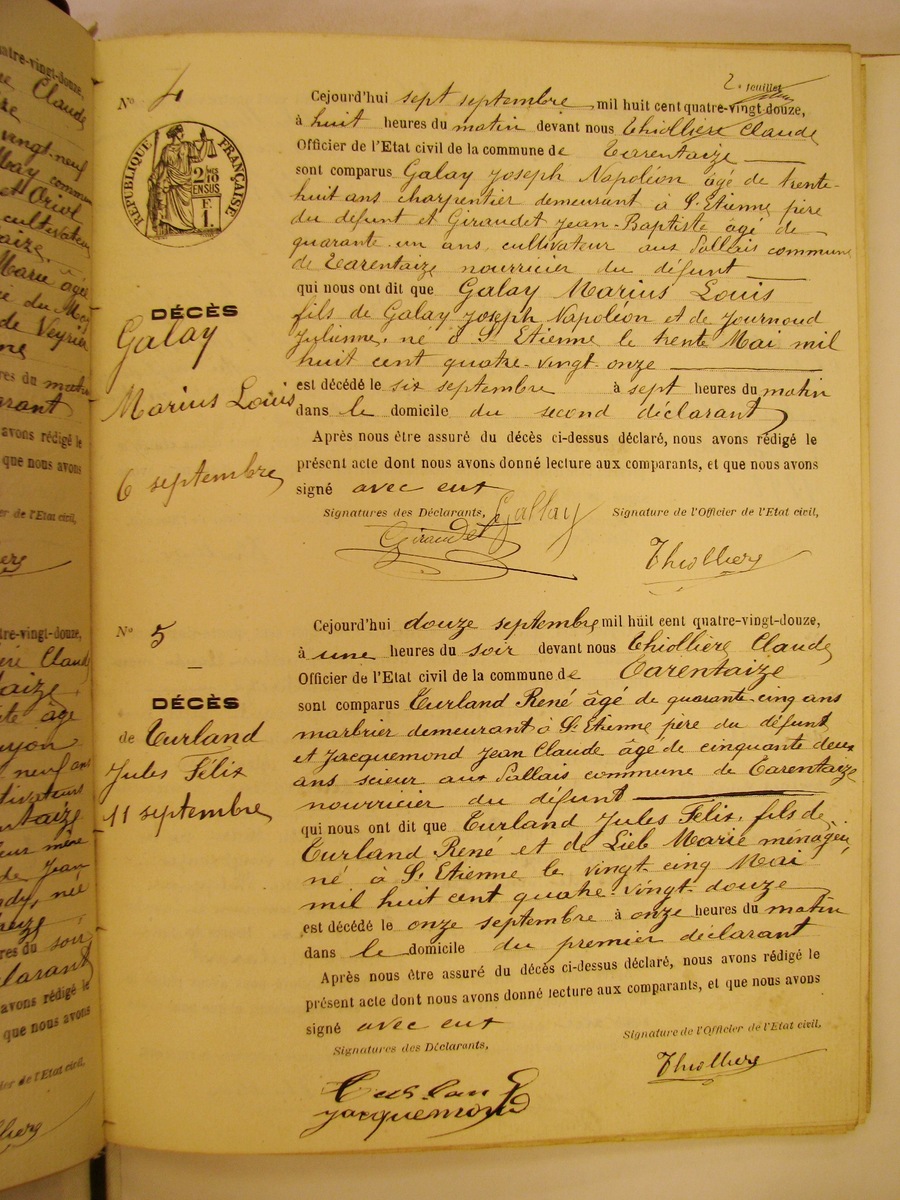 2e feuillet
N° 4
Cejourd'hui sept septembre mil huit cent quatre-vingt-douze,
à huit heures du matin devant nous Thiollière Claude
Officier de l'Etat civil de la commune de Tarentaize
sont comparus Galay Joseph Napoléon âgé de trente-
huit ans charpentier demeurant à St Etienne père
du défunt et Giraudet Jean-Baptiste âgé de
quarante-un ans, cultivateur aux Pallais commune
de Tarentaize nourricier du défunt
qui nous ont dit que Galay Marius Louis
fils de Galay Joseph Napoléon et de Journoud
Julienne, né à St Etienne le trente Mai mil
huit cent quatre-vingt-onze
est décédé le six septembre à sept heures du matin
dans le domicile du second déclarant
Après nous être assuré du décès ci-dessus déclaré, nous avons rédigé le
présent acte dont nous avons donné lecture aux comparants, et que nous avons
signé avec eux
Signatures des Déclarants, Signature de l'Officier de l'Etat civil,
Gallay
Giraudet
Thiolliere
RÉPUBLIQUE FRANÇAISE
2/10 EN SUS
F 1
DÉCÈS
Galay
Marius Louis
6 septembre
N° 5
Cejourd'hui douze septembre mil huit cent quatre-vingt-douze,
à une heures du soir devant nous Thiollière Claude
Officier de l'Etat civil de la commune de Tarentaize
sont comparus Turland René âgé de quarante-cinq ans
marbrier demeurant à St Etienne père du défunt
et Jacquemond Jean Claude âgé de cinquante deux
ans scieur aux Pallais commune de Tarentaize
nourricier du défunt
qui nous ont dit que Turland Jules Félix, fils de
Turland René et de Lieb Marie ménagère
né à St Etienne le vingt-cinq Mai
mil huit cent quatre-vingt-douze
est décédé le onze septembre à onze heures du matin
dans le domicile du premier déclarant
Après nous être assuré du décès ci-dessus déclaré, nous avons rédigé le
présent acte dont nous avons donné lecture aux comparants, et que nous avons
signé avec eux
Signatures des Déclarants, Signature de l'Officier de l'Etat civil,
Turland
Jacquemond
Thiolliere
DÉCÈS
de Turland
Jules Félix
11 septembre